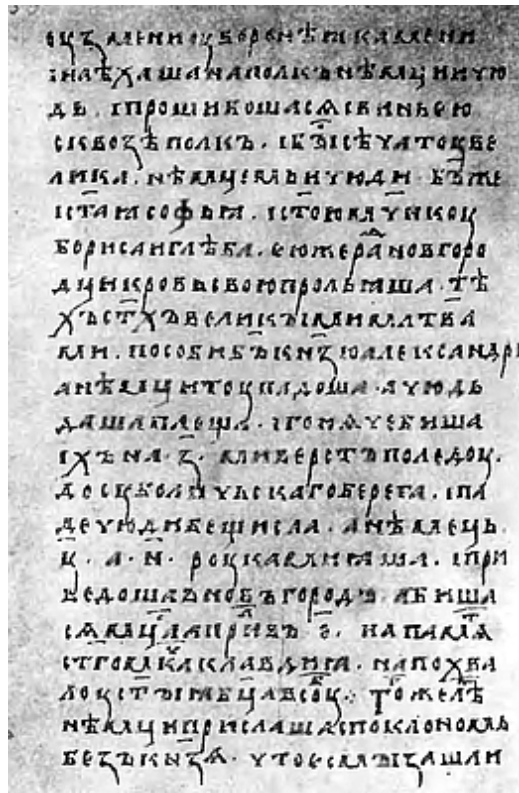 оузмени оу воронѣꙗ камени
і наѣхаша на полкъ нѣмци и чю
дь · і прошибошасѧ свиньею
сквозѣ полкъ · і бы сѣча тоу ве
лика · нѣмцемъ и чюди · бъ же
і стаꙗ софьꙗ · і стою мчнкоу
бориса и глѣба · ѥюже ра новгоро
дци кровь свою прольꙗша · тѣ
хъ стхъ великыми млтва
ми · пособи бъ кнзю александрꙋ
а нѣмци тоу падоша · а чюдь
даша плеща · і гонѧче биша
іхъ на · з҃ · ми верстъ по ледоу ·
до соуболичьскаго берега · і па
де чюди бещисла · а нѣмець ·
у҃ · а · н҃ · роукама ꙗша · і при
ведоша в новъгородъ · а биша
сѧ мца априлѧ въ · е҃ · на памѧ
стго мчка клавдиꙗ · на похва
лоу стыꙗ бца в соу · Того же лѣ
нѣмци прислаша с поклономь
безъ кнзѧ · что есмы зашли